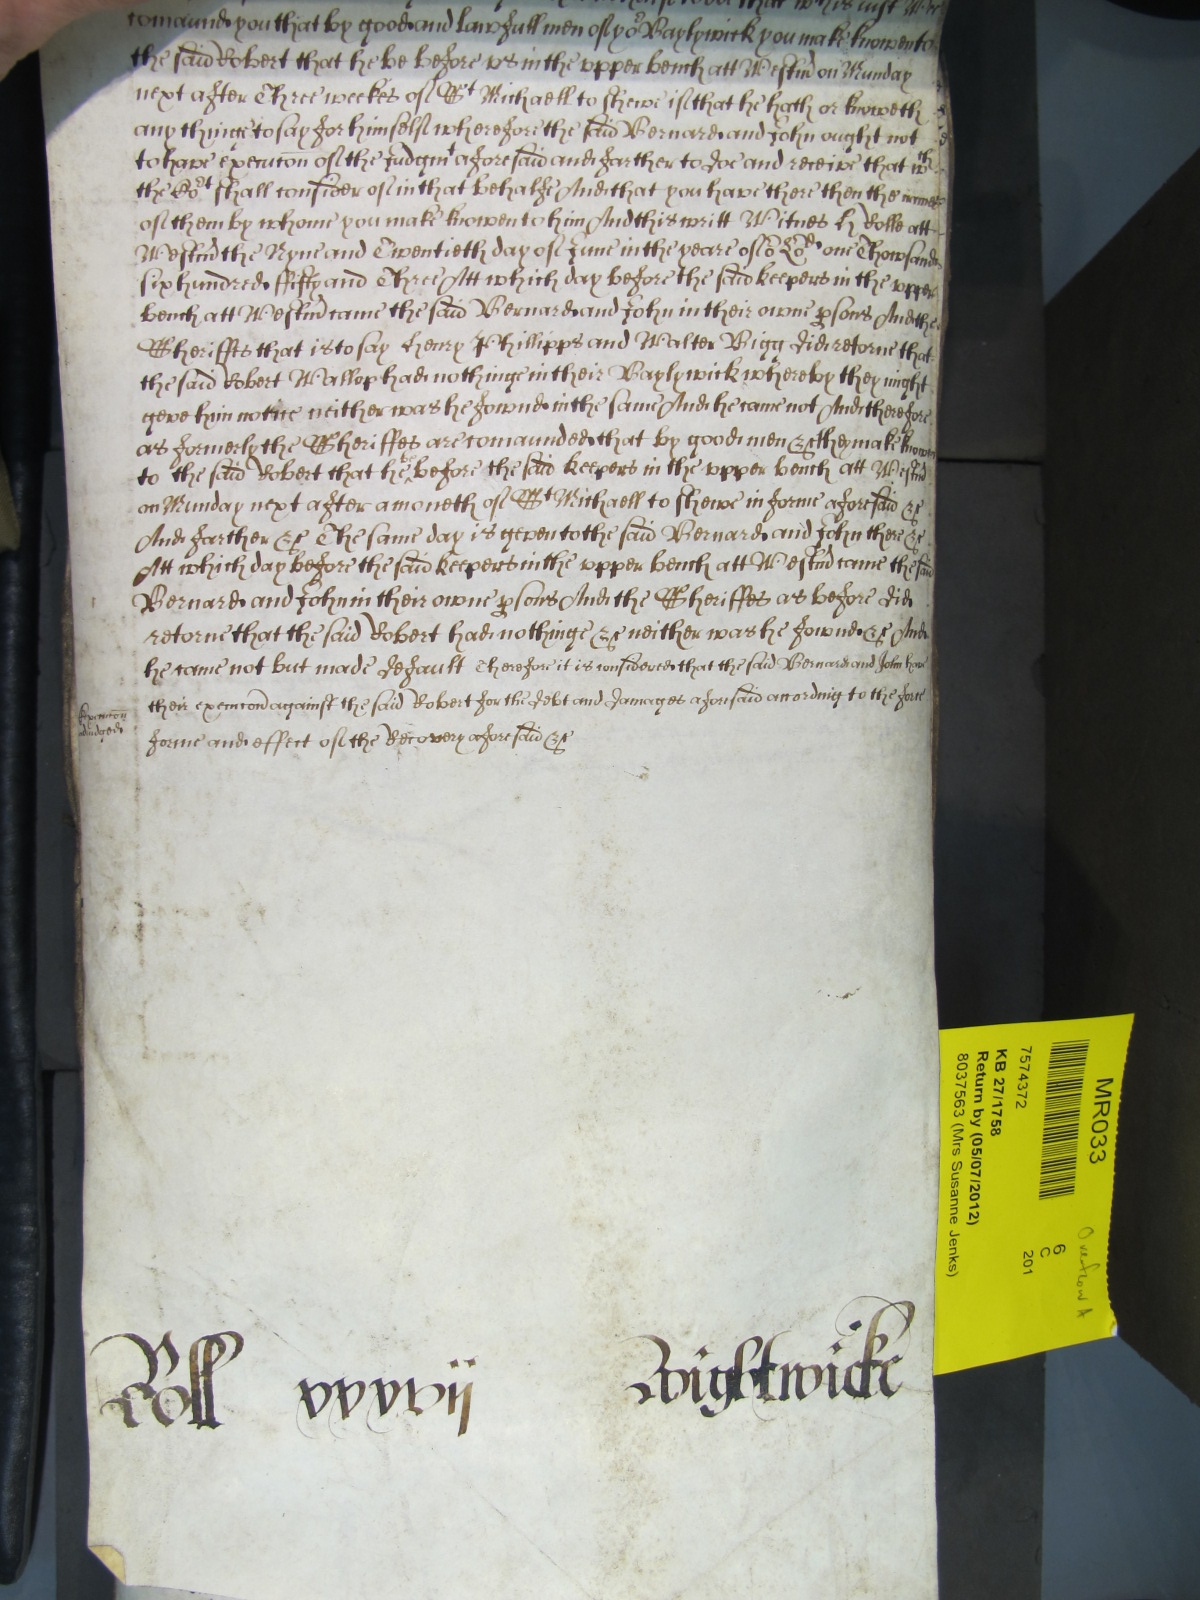 comaund you that by good and lawfull men of yor Baylywick you make knowen to
the said Robert that he be before us in the upper bench att Westmr on Munday
next after Three weekes of St Michaell to shewe if that he hath or knoweth
any thinge to say for himself wherefore the said Bernard and John ought not
to have execucon of the Judgmt aforesaid and farther to doe and receive that wch
the Cort shall consider of in that behalfe And that you have there then the names
of them by whome you make knowen to him And this writt Witnes H Rolle att
Westmr the Nyne and Twentieth day of June in the yeare of or Lord one Thowsand
six hundred fifty and Three Att which day before the said keepers in the upper
bench att Westmr came the said Bernard and John in their owne psons And the
Sheriffes that is to say Henry Phillipps and Walter Bigg did retorne that
the said Robert Wallop had nothinge in their Baylywick whereby they might
geve him notice neither was he fownd in the same And he came not And therefore
as formerly the Sheriffes are comaunded that by good men &c they make knowen
to the said Robert that he be before the said keepers in the upper bench att Westmr
on Munday next after a moneth of St Michaell to shewe in forme aforesaid &c
And farther &c The same day is geven to the said Bernard and John there &c
Att which day before the said keepers in the upper bench att Westmr came the said
Bernard and John in their owne psons And the Sheriffes as before did
retorne that the said Robert had nothinge &c neither was he fownd &c And
he came not but made default Therefore it is considered that the said Bernard and John have
their execucon against the said Robert for the debt and damages aforesaid according to the force
forme and effect of the Recovery aforesaid &c
Execucon
adiudged
Roll xxxvij Wightwicke
MR033
7574372
KB 27/1758
Return by (05/07/2012)
8037563 (Mrs Susanne Jenks)
6
C
201
Overflow A